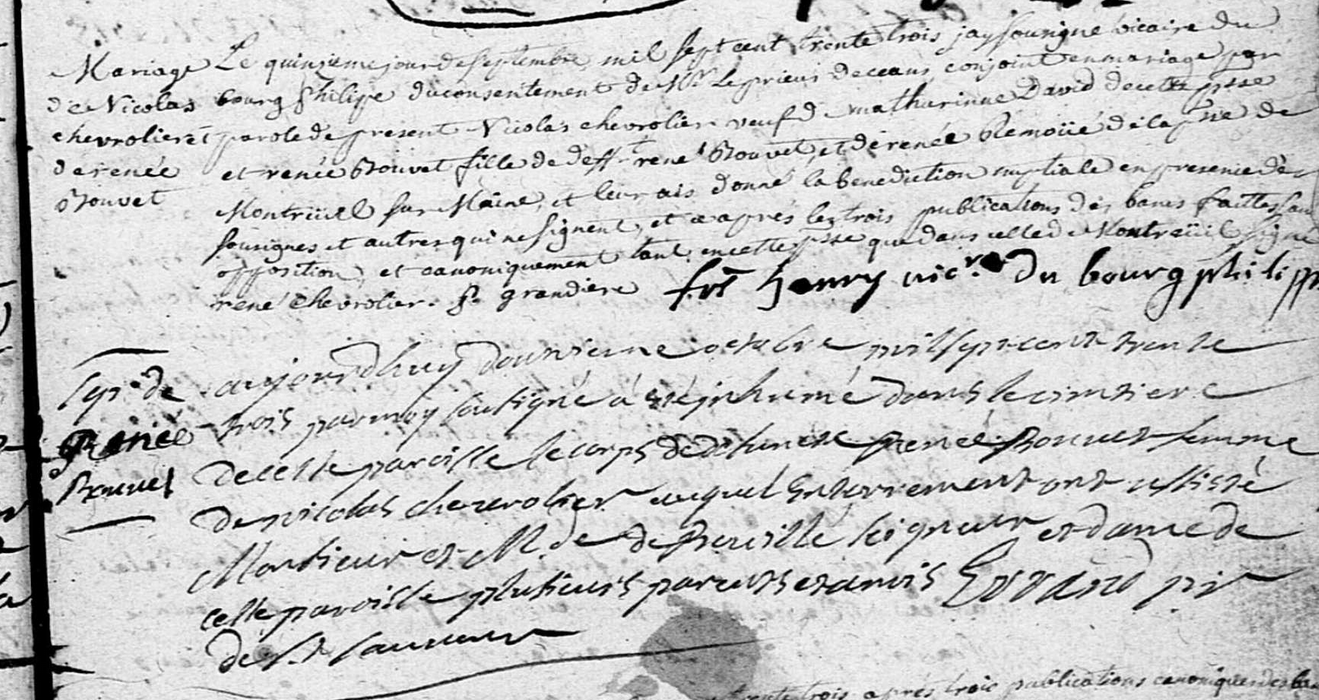 Mariage
de Nicolas
chevrolier et
de renée
Bouvet
Le quinzieme jour de septembre mil sept cent trente trois jay sousigné vicaire du
bourg philipe du consentement de Mr Le prieur de ceans conjoint en mariage par
parole de present Nicolas chevrolier veuf de mathurinne David de cette psse
et renée Bouvet fille de defft rené Bouvet et de renée de la psse de
Montreüil sur Maine, et leur ais donné la benediction nuptiale en presence des
sousignes et autres qui ne signent, et ce aprés les trois publications des bans faittes sans
opposition et canoniquement tant en cette psse que dans celle de Montreüil signé
rené chevrolier. grandiere frere henry vicre du bourg philippe
de
Renée
Bouvet
aujourdhuy octobre mil sept cent trente
trois par moy soutigné à été inhumé dans le cimtiere
de cette paroisse le corps de defunte Renée Bouvet femme
de nicolas chevrolier auquel enterrement ont assisté
Montieur et M. de de seigneur et dame de
cette paroisse plutieurs parents et amis
de St sauveur
trente trois aprés trois publications canoniques des bans